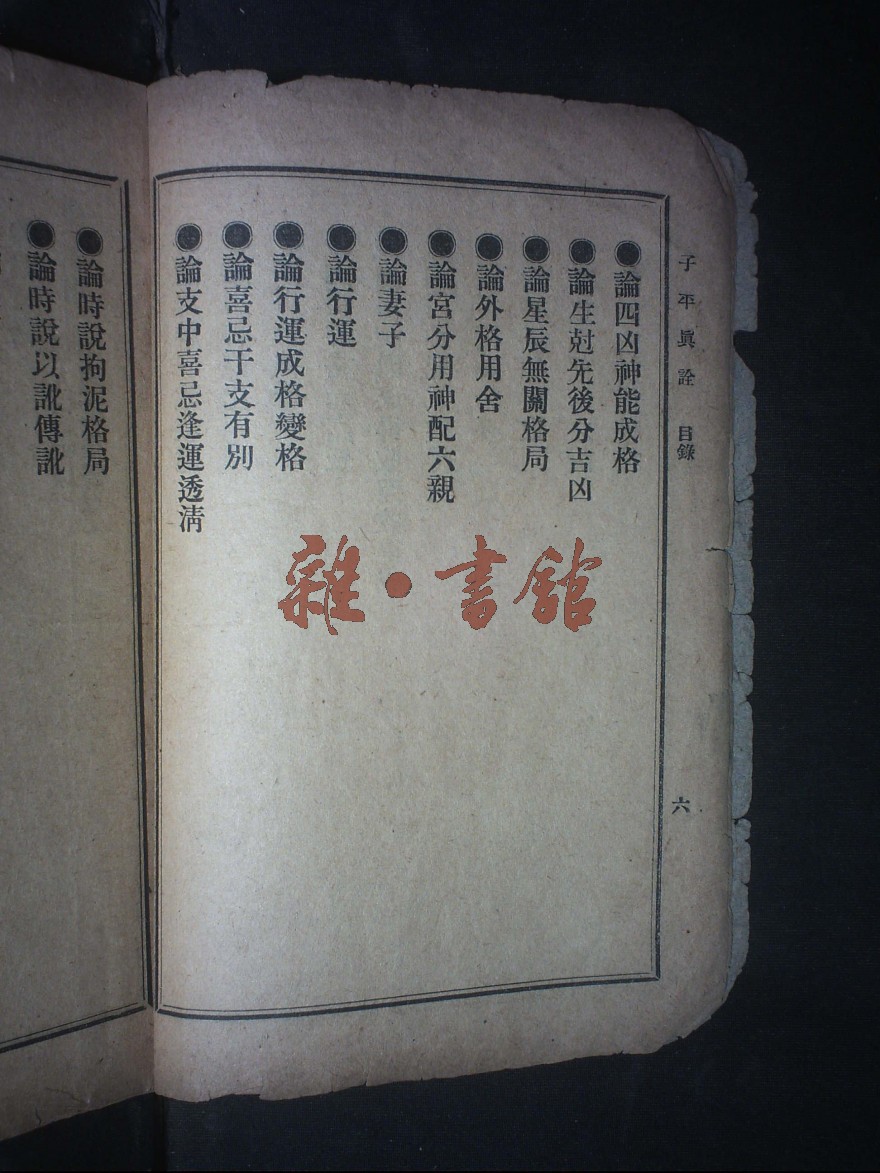 子平眞詮　目錄
六
●論四凶神能成格
●論生尅先後分吉凶
●論星辰無關格局
●論外格用舍
●論宮分用神配六親
●論妻子
●論行運
●論行運成格變格
●論喜忌干支有別
●論支中喜忌逢運透淸
●論時說拘泥格局
●論時說以訛傳訛
雜·書館